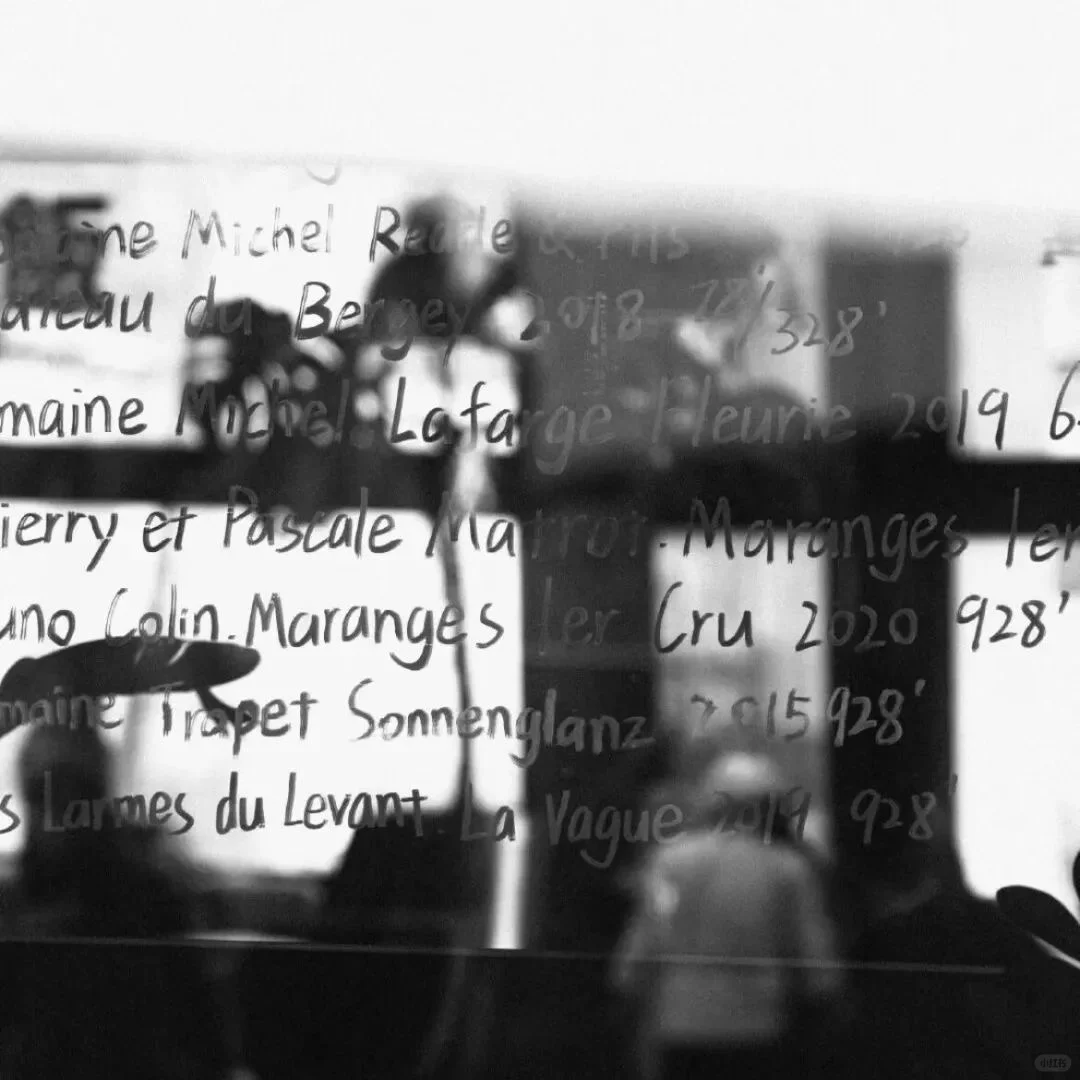 Michel & Fils
du Bergey 2018 78/328'
maine Michel Lafarge Fleurie 2019 6
ierry et Pascale Matrot. Maranges 1er
uno Colin. Maranges 1er Cru 2020 928'
maine Trapet Sonnenglanz 2015 928'
s Larmes du Levant. La Vague 2019 928'